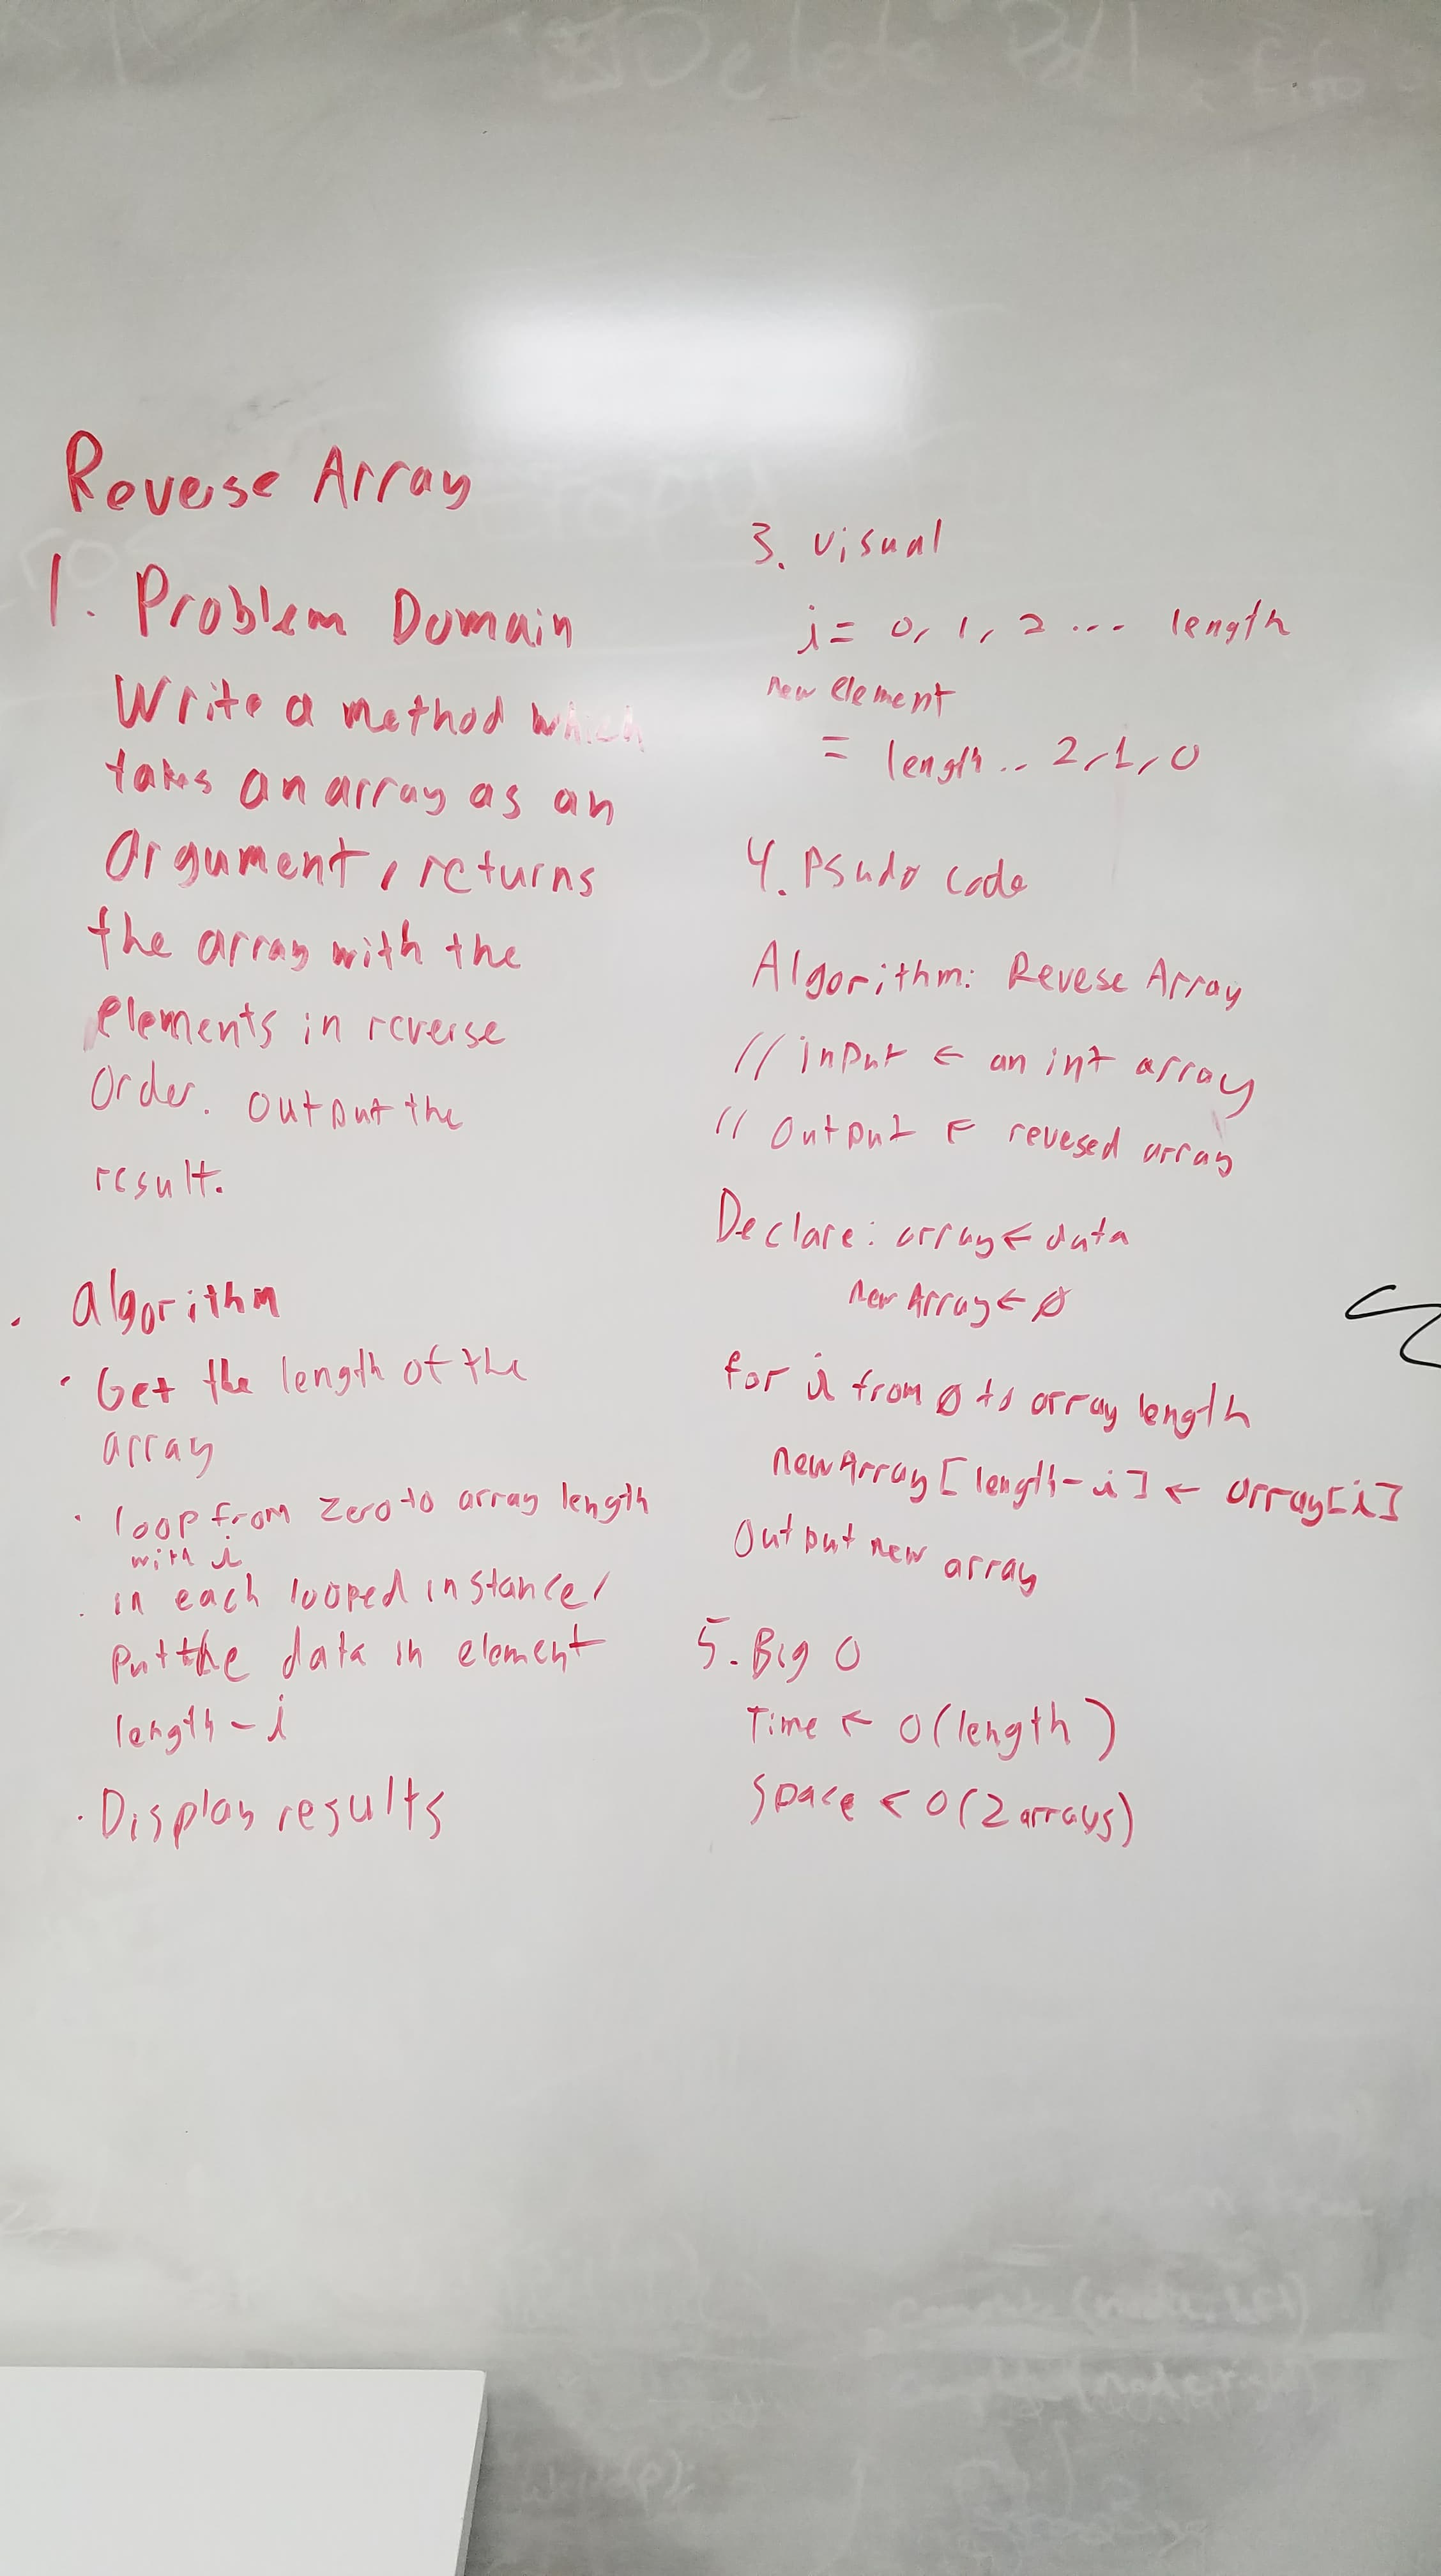 Reverse Array
1. Problem Domain
Write a method which
takes an array as an
argument, returns
the array with the
elements in reverse
order. output the
result.
. algorithm
· Get the length of the
array
· loop from zero to array length
with i
· in each looped instance,
put the data in element
length - i
· Display results
3. visual
i = 0, 1, 2 ... length
new element
= length .. 2, 1, 0
4. Psudo code
Algorithm: Revese Array
// input ← an int array
// output ← revesed array
Declare: array ← data
new Array ← Ø
for i from Ø to array length
newArray [length - i] ← array[i]
Output new array
5. Big O
Time ← O(length)
Space < O(2 arrays)